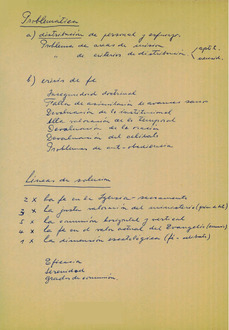 Problemática
a) distribución de personal y esfuerzo
Problema de áreas de misión
" de criterios de distribución
b) crisis de fe
Inseguridad doctrinal
Falta de asimilación
Devaluación de lo institucional
valoración de lo temporal
Devaluación de la oración
Devaluación del celibato
Problemas de aut-obediencia
Líneas de solución
2 x la fe en la Iglesia-sacramento
3 x la justa valoración del ministerio
5 x la comunión horizontal y vertical
4 x la fe en el valor actual del Evangelio
1 x la dimensión escatológica (fe -
Eficacia
Serenidad
Grados de comunión.